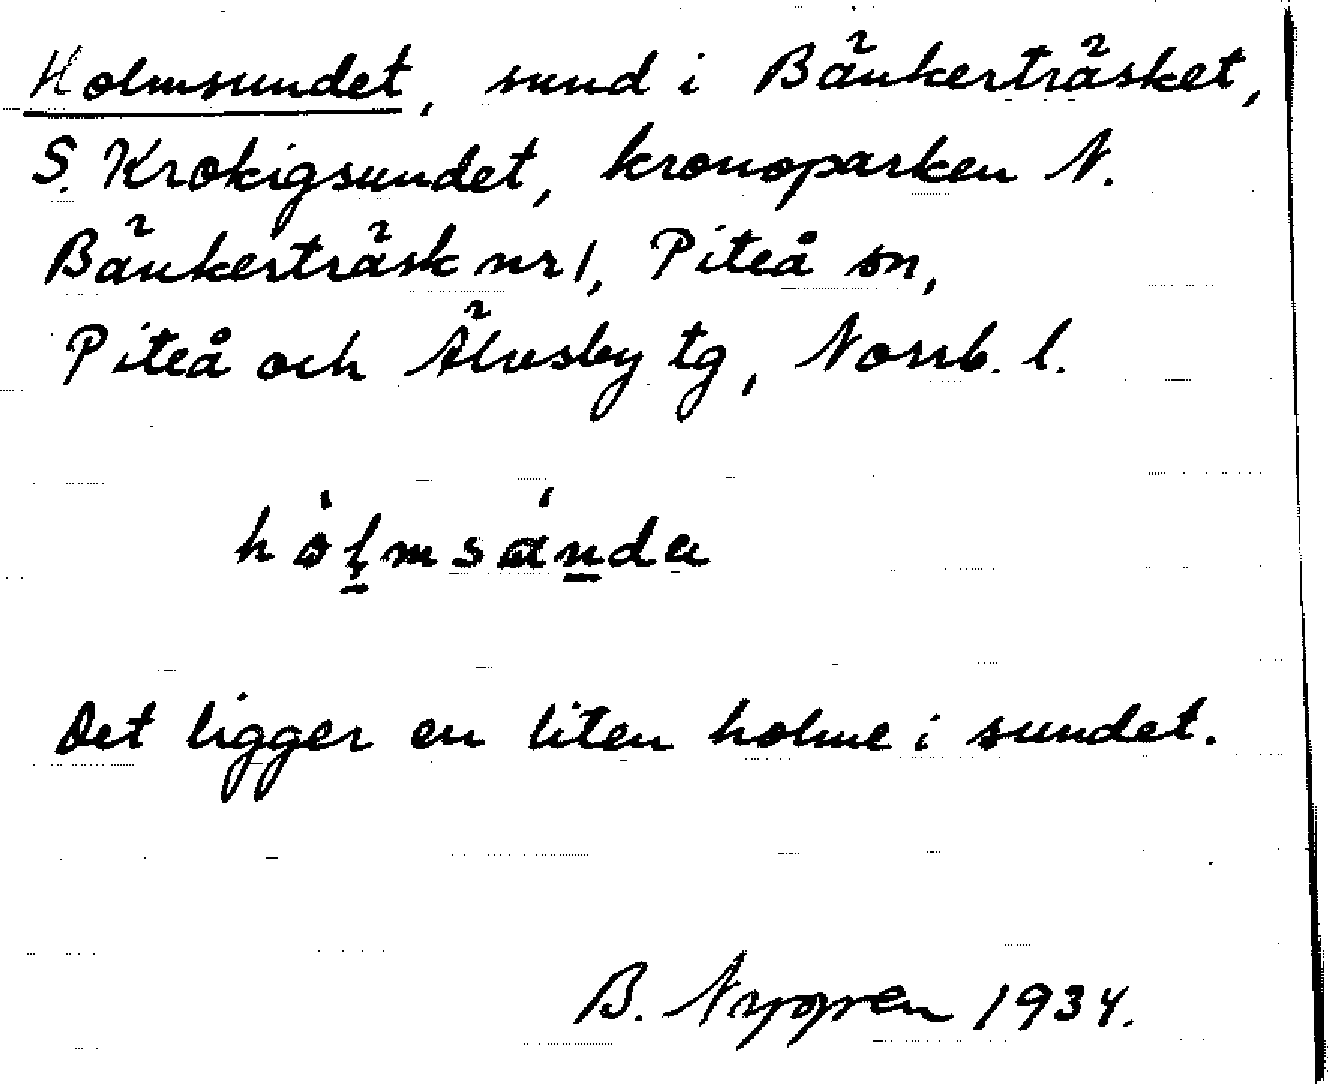 Holmsundet, sund i Bänkerträsket,
S. Krokigsundet, kronoparken N.
Bänkerträsk nr 1, Piteå sn,
Piteå och Älvsby tg, Norrb. l.
Det ligger en liten holme i sundet.
B. Nygren 1934.